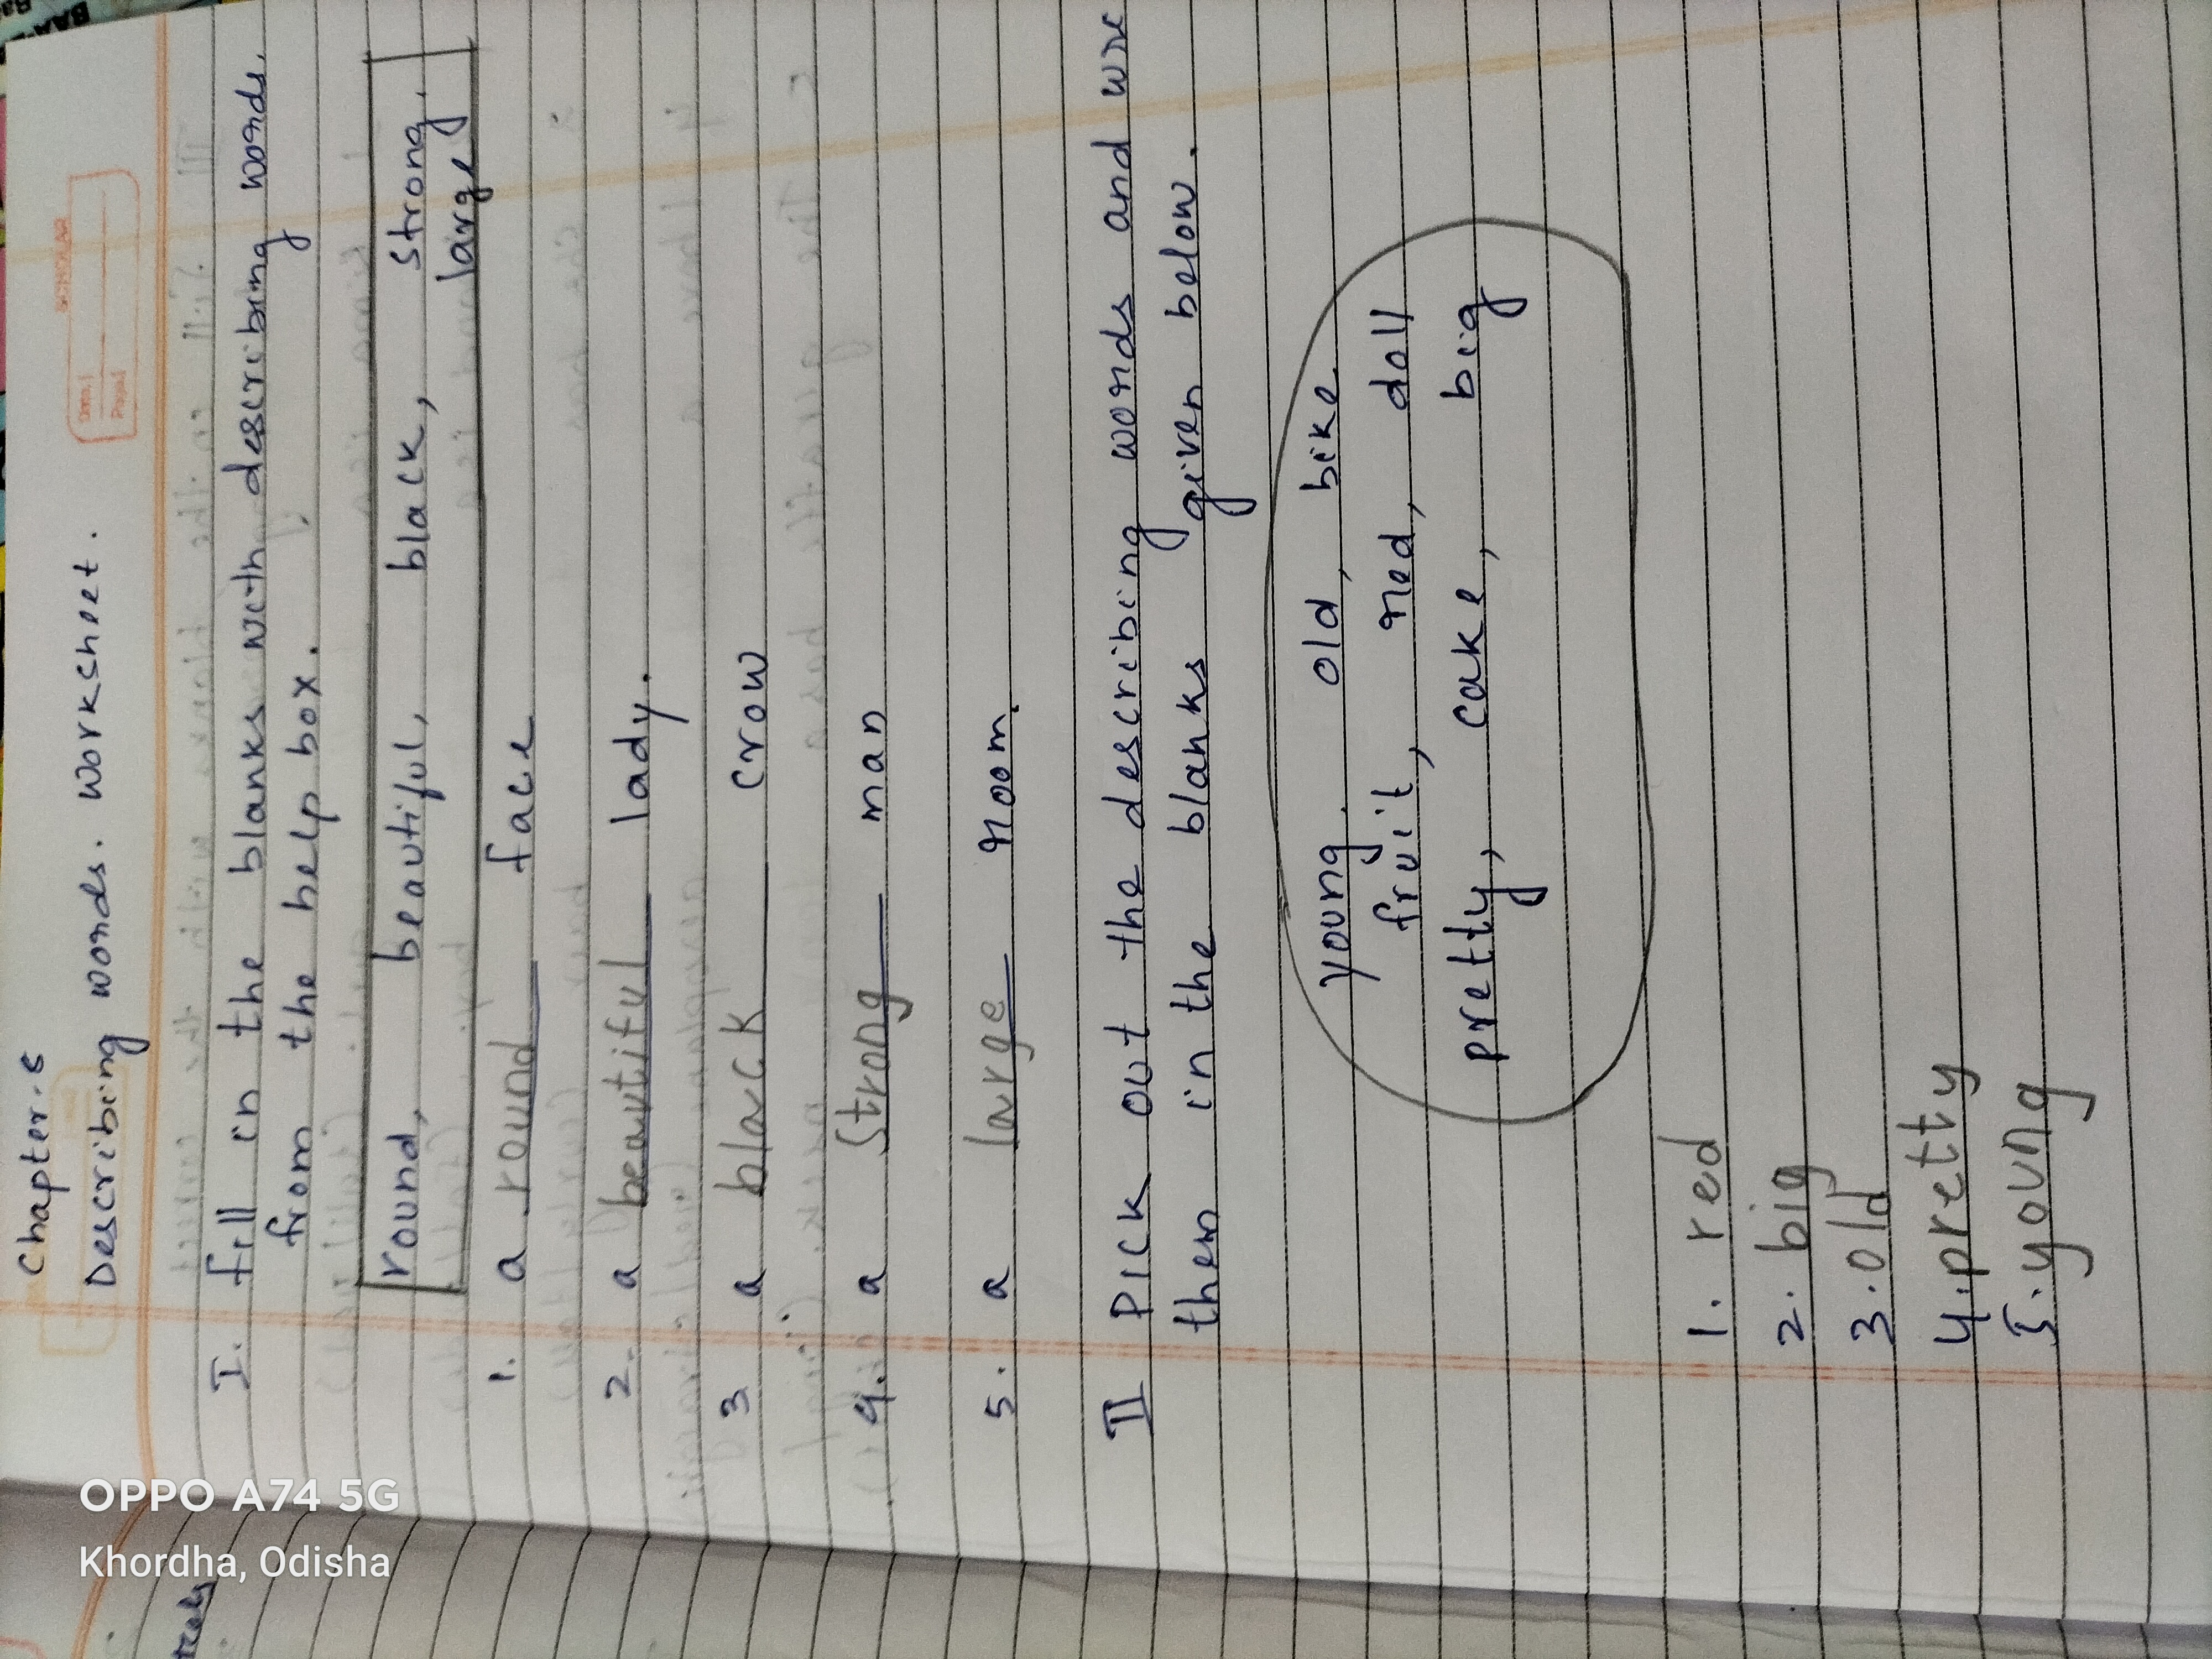 Chapter-8
Describing words. worksheet.
I. fill in the blanks with describing words.
from the help box.
round, beautiful, black, strong,
large
1. a round face
2. a beautiful lady.
3 a black crow
4. a strong man
5. a large room.
II Pick out the describing words and
them in the blanks given below.
young. old, bike
fruit, red, doll
pretty, cake, big
1. red
2. big
3. old
4. pretty
5. young
SCHOLAR
Date
Page
OPPO A74 5G
Khordha, Odisha